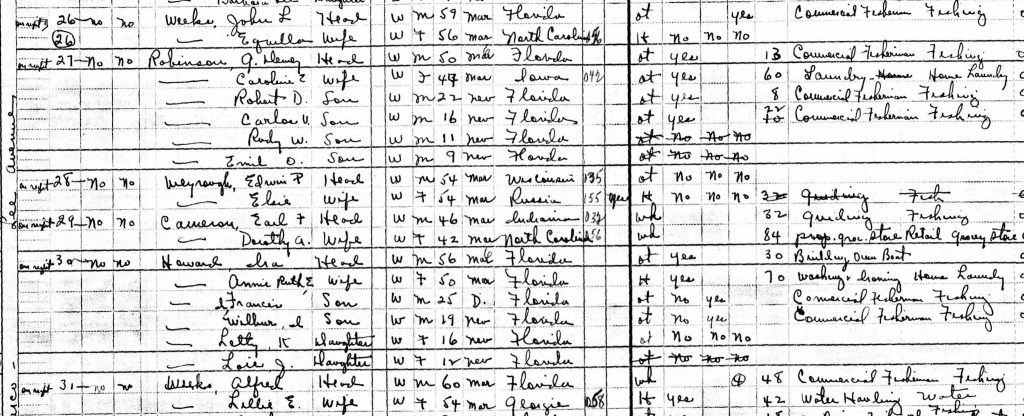 26 no no Weeks, John L Head W m 59 mar Florida ot yes Commercial Fisherman Fishing
26 — Equilla Wife W F 56 mar North Carolina H No No No
27 no no Robinson, G. Henry Head W m 50 mar Florida ot yes 13 Commercial Fisherman Fishing
— Caroline E Wife W F 47 mar Iowa 042 ot yes 60 Laundry Home Laundry
— Robert D. Son W m 22 nev Florida ot yes 8 Commercial Fisherman Fishing
— Carlos V. Son W m 16 nev Florida ot yes Commercial Fisherman Fishing
— Rudy W. Son W m 11 nev Florida ot No No No
— Emil O. Son W m 9 nev Florida ot No No No
28 no no Weyrough, Edwin P Head W m 54 mar Wisconsin 135 ot No No No
— Elsie Wife W F 54 mar Russia 155 yes H No No No 32 guiding Fish
29 no no Cameron, Earl F Head W m 46 mar Indiana 032 wk 32 guiding Fishing
— Dorothy A. Wife W F 42 mar North Carolina wk 84 prop. groc. store Retail Grocery Store
30 no no Howard Ira Head W m 56 mar Florida ot yes 30 Building Own Boat
— Annie Ruth E Wife W F 50 mar Florida H yes 70 Washing & Ironing Home Laundry
— Francis Son W m 25 D. Florida ot no yes Commercial Fisherman Fishing
— Wilbur Son W m 19 nev Florida ot no yes Commercial Fisherman Fishing
— Letty K Daughter W F 16 nev Florida ot No No No
— Lois J Daughter W F 12 nev Florida ot No No No
31 no no Weeks, Alfred Head W m 60 mar Florida wk 4 48 Commercial Fisherman Fishing
— Lillie E. Wife W F 54 mar Georgia H yes 42 Water Hauling Water
Avenue